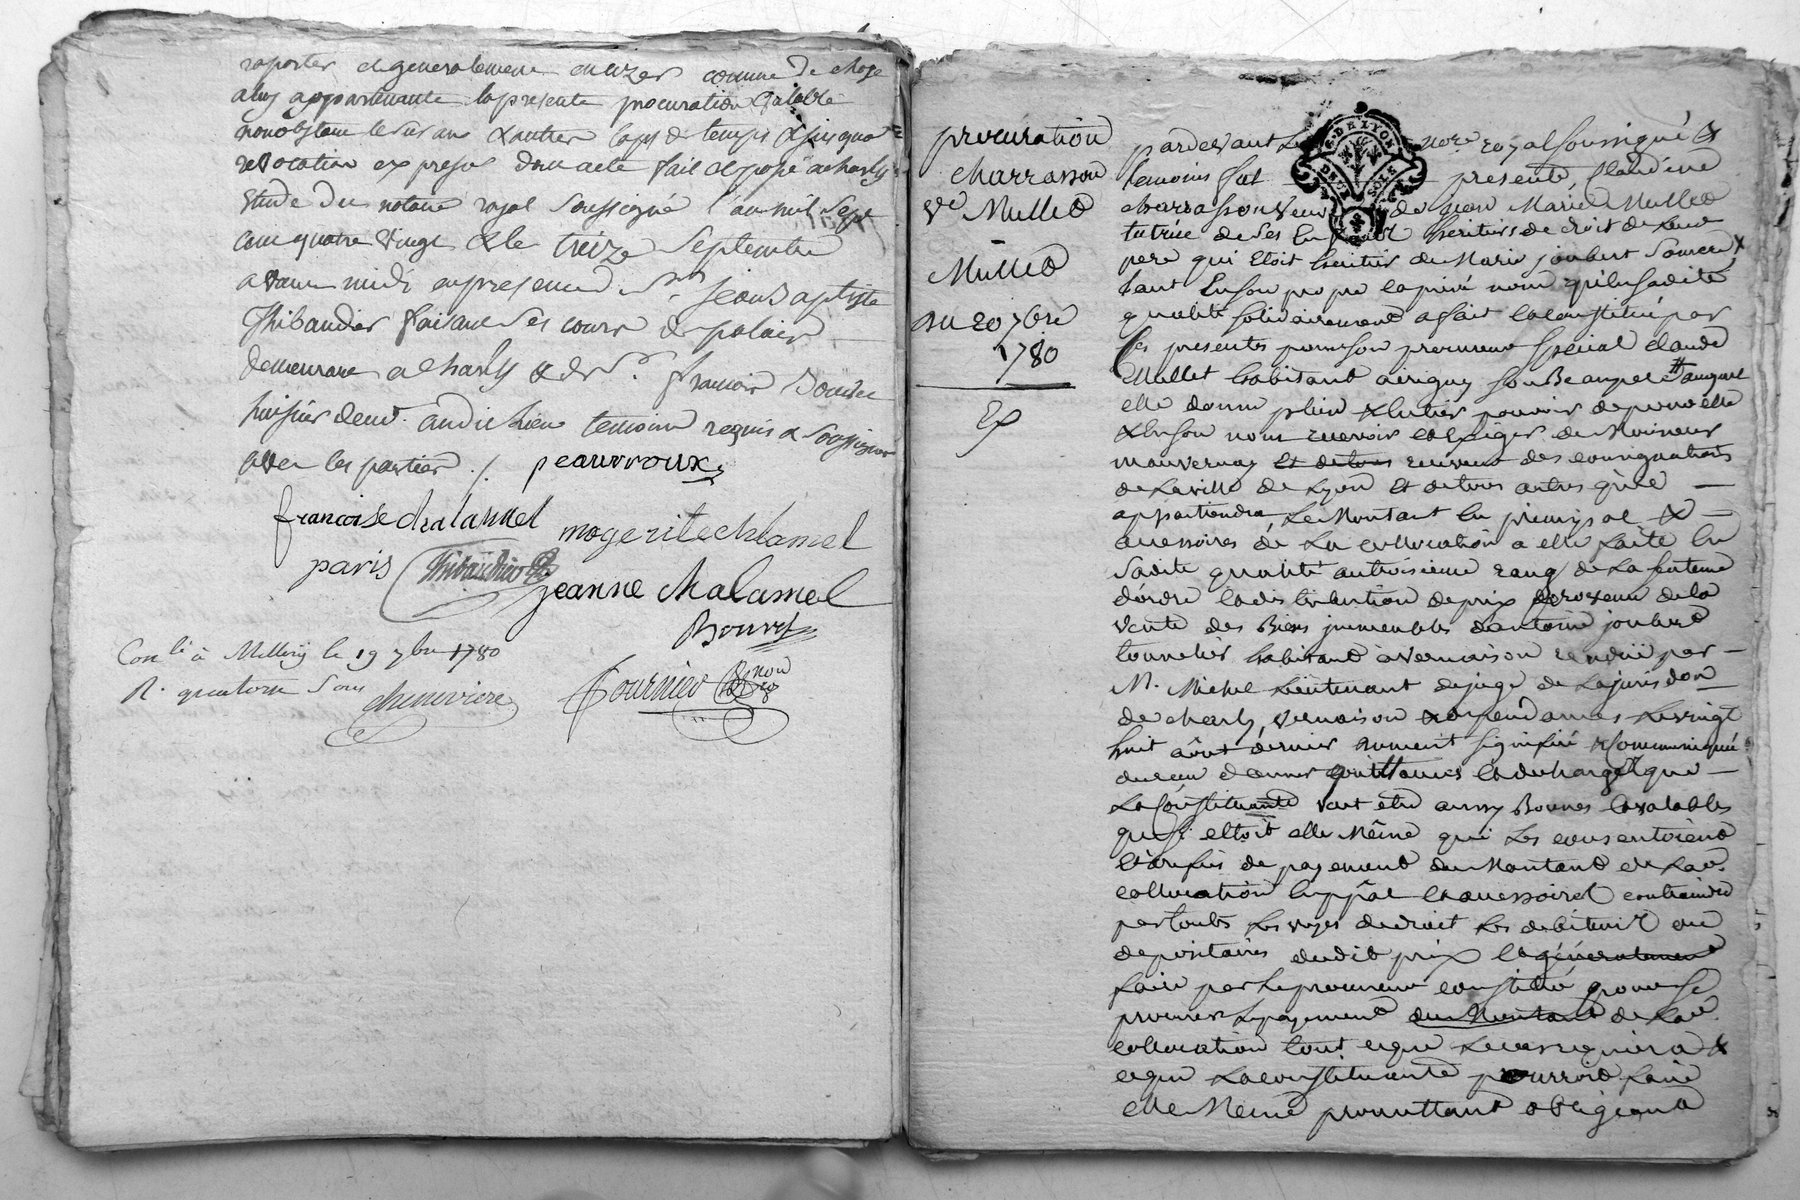 raporter et generalement en uzer comme de chose
a luy appartenante la presente procuration valable
nonobstant le sur an & autres laps de temps & jusqua
revocation expresse dont acte fait et passé a charly
Etude du notaire royal soussigné l'an mil Sept
cent quatre vingt & le treize Septembre
avant midi en presence de Sr jean Baptiste
Thibaudier faisant ses cours de palais
demeurant a charly & de Sr françois Bouvet
huissier demt audit lieu temoins requis & soussignes
avec les parties ./. peauvroux
francoise chalamel
mogerite chlamel
paris Thibaudier
jeanne chalamel
Bouvet
Con.lé à Millery le 19 7bre 1780
R. quatorze sous chenevière
Fournier nore
procuration
charrasson
Ve Mullet
Mullet
du 20 7bre
1780
Ex
G. DE LYON
DEUX SOLS
pardevant Le nore royal soussigné &
temoins fut presente Claudine
charrasson veuve de jean Marie Mullet
tutrice de ses Enfants heritiers de droit de Leur
pere qui Etoit heritier de Marie joubert sa mere
tant En son propre et privé nom qu'en sadite
qualité solidairement a fait et constitué par
ses presentes pour son procureur special claude
Mullet habitant a irigny son Beaupere # auquel
elle donne plein & Entier pouvoir de pour elle
& En son nom recevoir et Exiger de Monsieur
mauvernay et de tous receveur des consignations
de La ville de Lyon Et de tous autres qu'il
appartiendra, Le Montant En principal &
accessoires de La collocation a elle faite En
sadite qualité au troisieme rang de La sentence
dordre et distribution de prix provenu de la
vente des Biens immeubles d'antoine joubert
tonnelier habitant a vernaison rendüe par
M. Michel Lieutenant de juge de La jurisdon
de charly, vernaison & dependances Le vingt
huit aôut dernier dument signifiée & Communiquée
du reçu donner quittances et decharges que
La Constituante veut etre aussy Bonnes et valables
que si etoit elle Même qui Les consentoient
Et a refus de payement du Montant de Lad.
collocation En ppal et accessoires contraindre
par toutes Les voyes de droit Les debiteurs ou
depositaires dudit prix et généralement
faire par Le procureur constitué pour se
procurer Le payement du Montant de Lad.
collocation tout ce que Le cas requiera &
ce que La constituante pourroit faire
elle Même promettant obligeant